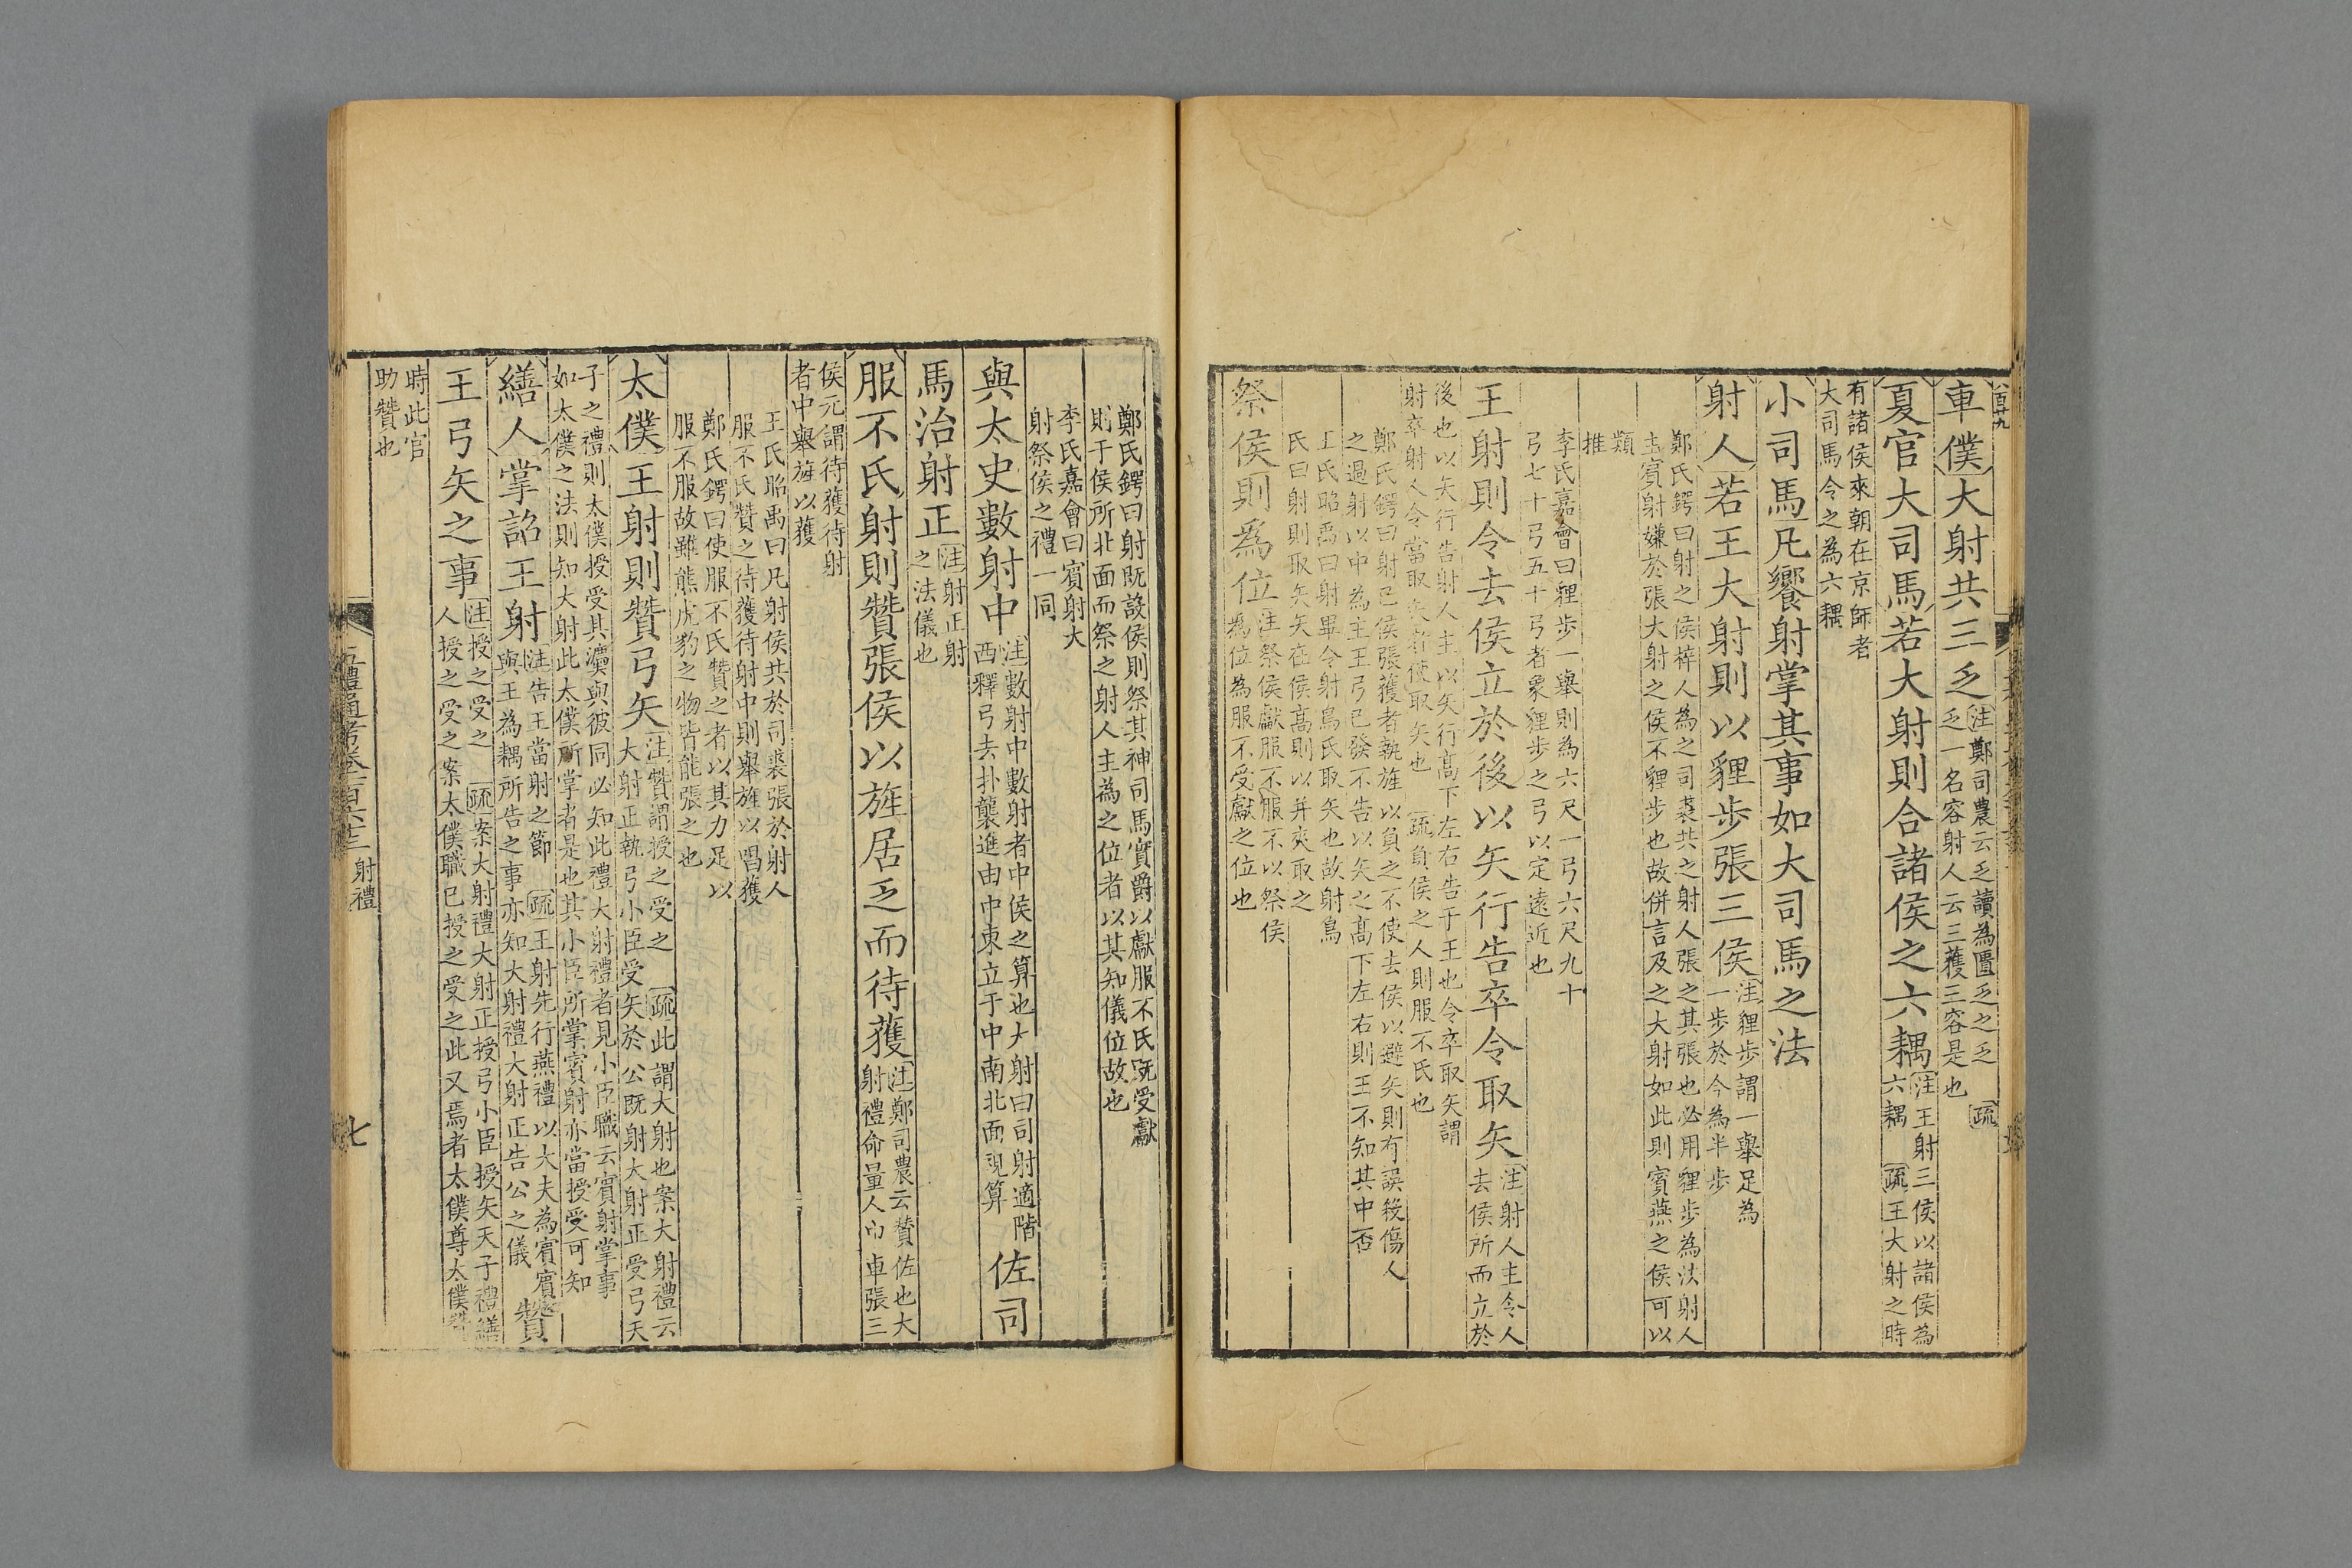 車僕大射共三乏注鄭司農云乏讀為匱乏之乏　疏
乏一名容射人云三獲三容是也
夏官大司馬若大射則合諸侯之六耦注王射三侯以諸侯為
六耦　疏王大射之時
有諸侯來朝在京師者
大司馬令之為六耦
小司馬凡饗射掌其事如大司馬之法
射人若王大射則以貍步張三侯注貍步謂一舉足為
一步於今為半步
鄭氏鍔曰射之侯梓人為之司裘共之射人張之其張也必用貍步為法射人
主賓射嫌於張大射之侯不貍步也故併言及之大射如此則賓燕之侯可以
類
推
李氏嘉會曰貍步一舉則為六尺一弓六尺九十
弓七十弓五十弓者象貍步之弓以定遠近也
王射則令去侯立於後以矢行告卒令取矢注射人主令人
去侯所而立於
後也以矢行告射人主以矢行高下左右告于王也令卒取矢謂
射卒射人令當取矢者使取矢也　疏負侯之人則服不氏也
鄭氏鍔曰射已侯張獲者執旌以負之不使去侯以避矢則有誤致傷人
之過射以中為主王弓已發不告以矢之高下左右則王不知其中否
王氏昭禹曰射畢令射鳥氏取矢也故射鳥
氏曰射則取矢矢在侯高則以并夾取之
祭侯則為位注祭侯獻服不服不以祭侯
為位為服不受獻之位也
鄭氏鍔曰射既設侯則祭其神司馬實爵以獻服不氏既受獻
則于侯所北面而祭之射人主為之位者以其知儀位故也
李氏嘉會曰賓射大
射祭侯之禮一同
與太史數射中注數射中數射者中侯之算也大射曰司射適階
西釋弓去扑襲進由中東立于中南北面視算
佐司
馬治射正注射正射
之法儀也
服不氏射則贊張侯以旌居乏而待獲注鄭司農云贊佐也大
射禮命量人巾車張三
侯元謂待獲待射
者中舉旌以獲
王氏昭禹曰凡射侯共於司裘張於射人
服不氏贊之待獲待射中則舉旌以唱獲
鄭氏鍔曰使服不氏贊之者以其力足以
服不服故雖熊虎豹之物皆能張之也
太僕王射則贊弓矢注贊謂授之受之　疏此謂大射也案大射禮云
大射正執弓小臣受矢於公既射大射正受弓天
子之禮則太僕授受其瀆與彼同必知此禮大射禮者見小臣職云賓射掌事
如太僕之法則知大射此太僕所掌者是也其小臣所掌賓射亦當授受可知
繕人掌詔王射注告王當射之節　疏王射先行燕禮以大夫為賓賓
與王為耦所告之事亦知大射禮大射正告公之儀
贊
王弓矢之事注授之受之　疏案大射禮大射正授弓小臣授矢天子禮繕
人授之受之案太僕職已授之受之此又焉者太僕尊太僕贊
時此官
助贊也
五禮通考卷一百六十三　射禮
七